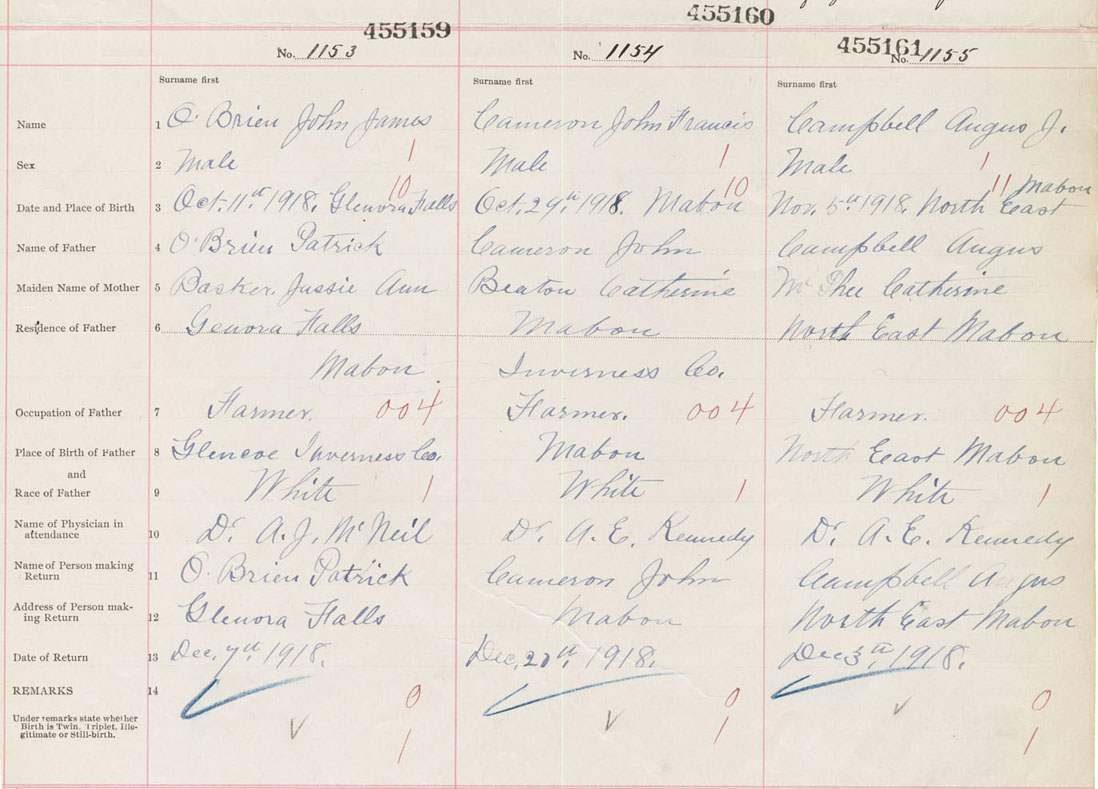 455159 455160 455161
No. 1153 No. 1154 No. 1155
Surname first Surname first Surname first
Name 1 O'Brien John James Cameron John Francis Campbell Angus J.
Sex 2 Male 1 Male 1 Male 1
10 10 11 Mabou
Date and Place of Birth 3 Oct. 11th 1918. Glenora Falls Oct. 29th 1918. Mabou Nov. 5th 1918. North East
Name of Father 4 O'Brien Patrick Cameron John Campbell Angus
Maiden Name of Mother 5 Basker Jussie Ann Beaton Catherine McPhee Catherine
Residence of Father 6 Genora Falls Mabou North East Mabou
Mabou Inverness Co.
Occupation of Father 7 Farmer. 004 Farmer. 004 Farmer. 004
Place of Birth of Father 8 Glencoe Inverness Co. Mabou North East Mabou
and
Race of Father 9 White 1 White 1 White 1
Name of Physician in
attendance 10 Dr. A. J. McNeil Dr. A. E. Kennedy Dr. A. E. Kennedy
Name of Person making
Return 11 O'Brien Patrick Cameron John Campbell Angus
Address of Person mak-
ing Return 12 Glenora Falls Mabou North East Mabou
Date of Return 13 Dec. 7th 1918. Dec. 20th 1918. Dec 3rd 1918.
REMARKS 14 0 0 0
Under remarks state whether
Birth is Twin, Triplet, Ille-
gitimate or Still-birth. 1 1 1